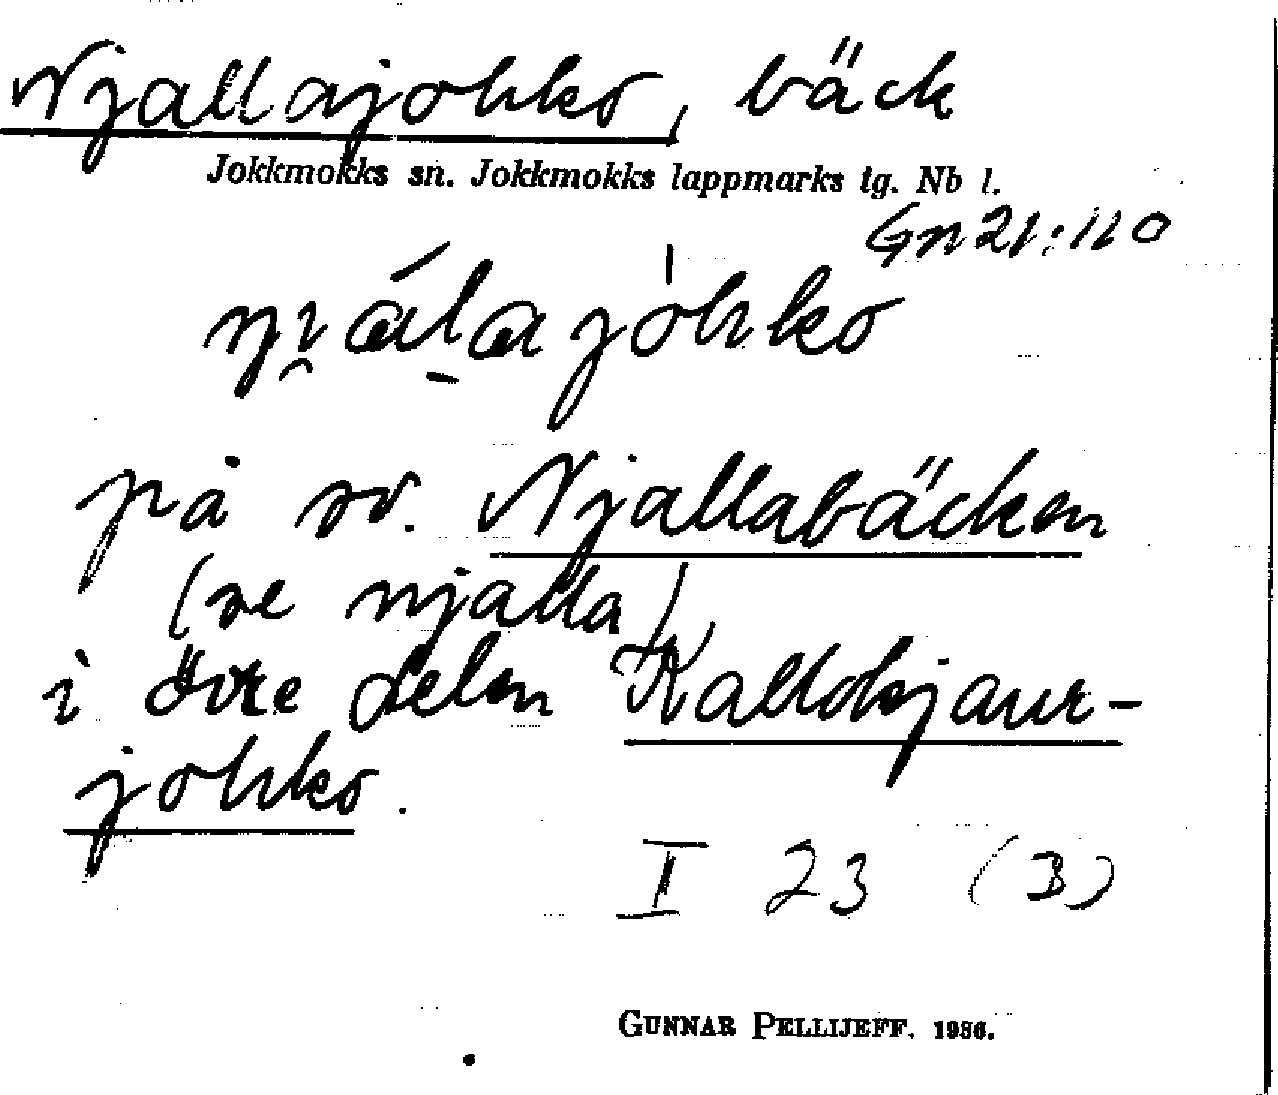 Njallajohko, bäck
Jokkmokks sn. Jokkmokks lappmarks tg. Nb l.
Gn 21:110
på sv. Njallabäcken
(se njalla)
i övre delen Kallokjaur-
johko.
I 23 (B)
GUNNAR PELLIJEFF. 1986.